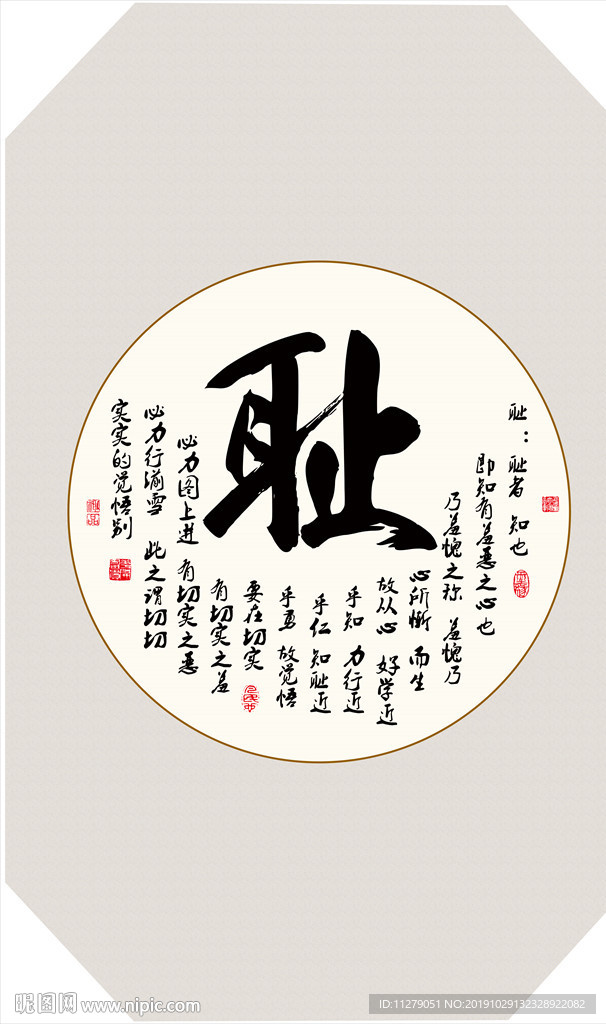 耻
耻：耻者 知也
即知有羞恶之心也
乃羞愧之称 羞愧乃
心所惭 而生
故从心 好学近
乎知 力行近
乎仁 知耻近
乎勇 故觉悟
要在切实
有切实之羞
有切实之恶
必力图上进
必力行湔雪 此之谓切切
实实的觉悟别
昵图网 www.nipic.com
ID:11279051 NO:20191029132328922082